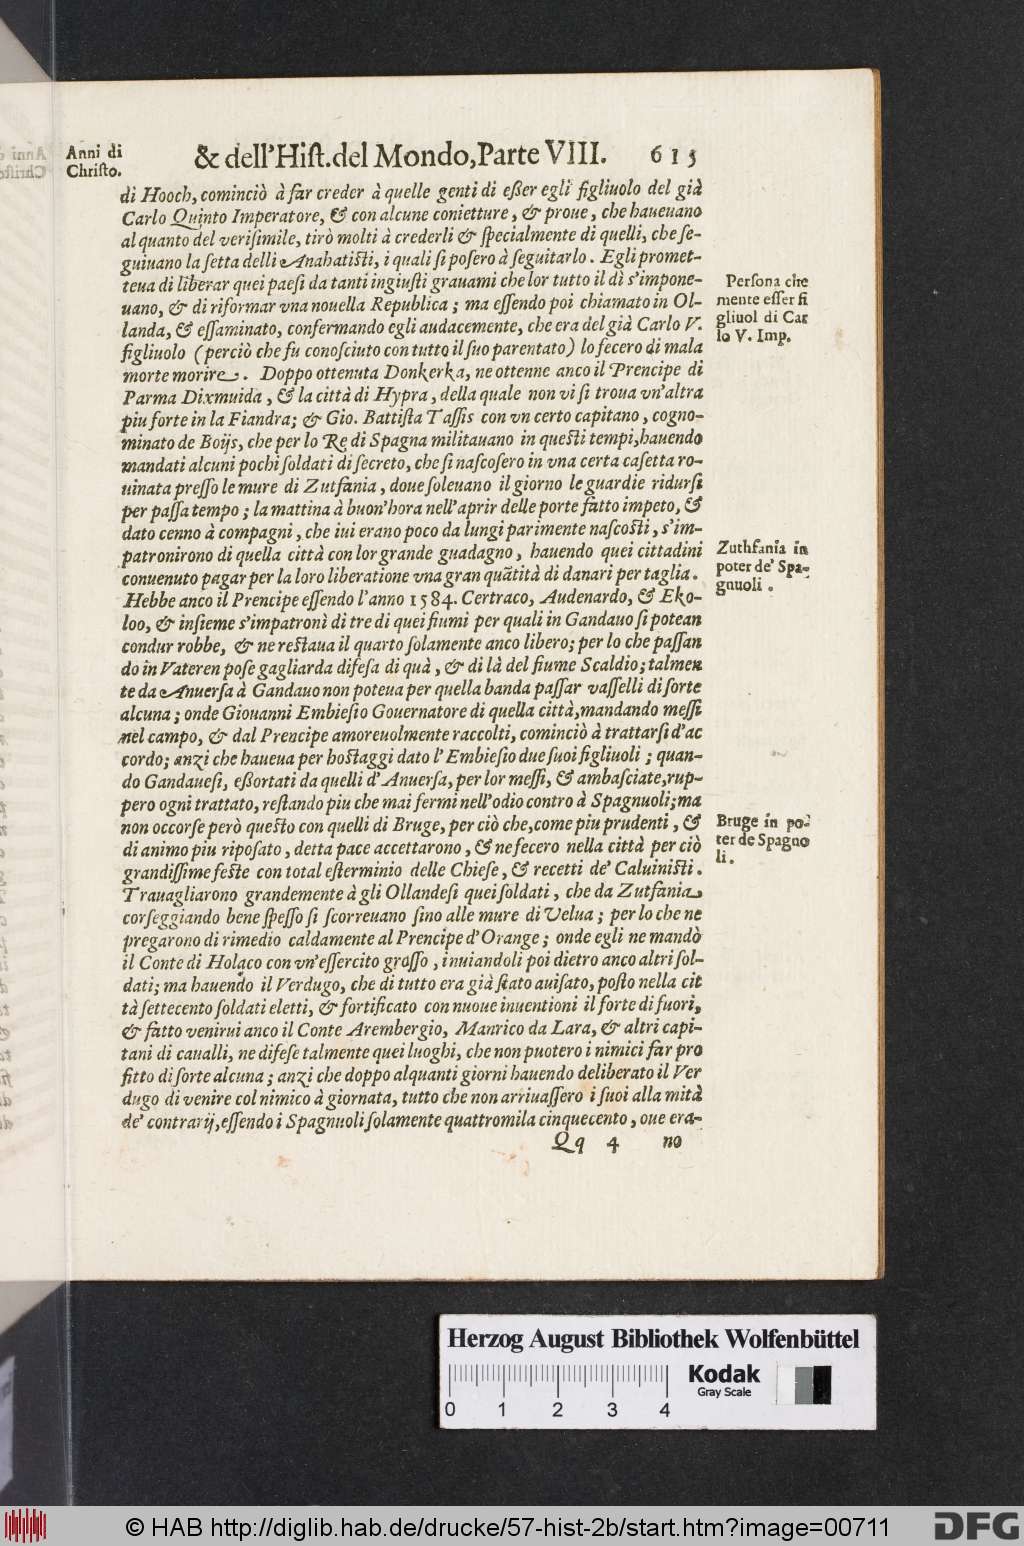 Anni di
Chriſto.
& dell'Hiſt. del Mondo, Parte VIII. 615
di Hooch, cominciò à far creder à quelle genti di eßer egli figliuolo del già
Carlo Quinto Imperatore, & con alcune conietture, & proue, che haueuano
alquanto del veriſimile, tirò molti à crederli & ſpecialmente di quelli, che ſe-
guiuano la ſetta delli Anabatiſti, i quali ſi poſero à ſeguitarlo. Egli promet-
teua di liberar quei paeſi da tanti ingiuſti grauami che lor tutto il dì s'impone-
uano, & di riformar vna nouella Republica; ma eſſendo poi chiamato in Ol-
landa, & eſſaminato, confermando egli audacemente, che era del già Carlo V.
figliuolo (perciò che fu conoſciuto con tutto il ſuo parentato) lo fecero di mala
morte morire. Doppo ottenuta Donkerka, ne ottenne anco il Prencipe di
Parma Dixmuida, & la città di Hypra, della quale non vi ſi troua vn'altra
piu forte in la Fiandra; & Gio. Battiſta Taſſis con vn certo capitano, cogno-
minato de Boijs, che per lo Re di Spagna militauano in queſti tempi, hauendo
mandati alcuni pochi ſoldati di ſecreto, che ſi naſcoſero in vna certa caſetta ro-
uinata preſſo le mure di Zutfania, doue ſoleuano il giorno le guardie ridurſi
per paſſa tempo; la mattina à buon'hora nell'aprir delle porte fatto impeto, &
dato cenno à compagni, che iui erano poco da lungi parimente naſcoſti, s'im-
patronirono di quella città con lor grande guadagno, hauendo quei cittadini
conuenuto pagar per la loro liberatione vna gran quãtità di danari per taglia.
Hebbe anco il Prencipe eſſendo l'anno 1584. Certraco, Audenardo, & Eko-
loo, & inſieme s'impatronì di tre di quei fiumi per quali in Gandauo ſi potean
condur robbe, & ne reſtaua il quarto ſolamente anco libero; per lo che paſſan
do in Vateren poſe gagliarda difeſa di quà, & di là del fiume Scaldio; talmen
te da Anuerſa à Gandauo non poteua per quella banda paſſar vaſſelli di ſorte
alcuna; onde Giouanni Embieſio Gouernatore di quella città, mandando meſſi
nel campo, & dal Prencipe amoreuolmente raccolti, cominciò à trattarſi d'ac
cordo; anzi che haueua per hoſtaggi dato l'Embieſio due ſuoi figliuoli; quan-
do Gandaueſi, eßortati da quelli d'Anuerſa, per lor meſſi, & ambaſciate, rup-
pero ogni trattato, reſtando piu che mai fermi nell'odio contro à Spagnuoli; ma
non occorſe però queſto con quelli di Bruge, per ciò che, come piu prudenti, &
di animo piu ripoſato, detta pace accettarono, & ne fecero nella città per ciò
grandiſſime feſte con total eſterminio delle Chieſe, & recetti de' Caluiniſti.
Trauagliarono grandemente à gli Ollandeſi quei ſoldati, che da Zutfania
corſeggiando bene ſpeſſo ſi ſcorreuano ſino alle mure di Velua; per lo che ne
pregarono di rimedio caldamente al Prencipe d'Orange; onde egli ne mandò
il Conte di Holaco con vn'eſſercito groſſo, inuiandoli poi dietro anco altri ſol-
dati; ma hauendo il Verdugo, che di tutto era già ſtato auiſato, poſto nella cit
tà ſettecento ſoldati eletti, & fortificato con nuoue inuentioni il forte di fuori,
& fatto venirui anco il Conte Arembergio, Manrico da Lara, & altri capi-
tani di caualli, ne difeſe talmente quei luoghi, che non puotero i nimici far pro
fitto di ſorte alcuna; anzi che doppo alquanti giorni hauendo deliberato il Ver
dugo di venire col nimico à giornata, tutto che non arriuaſſero i ſuoi alla mità
de' contrarij, eſſendo i Spagnuoli ſolamente quattromila cinquecento, oue era-
Qq 4 no
Perſona che
mente eſſer fi
gliuol di Car
lo V. Imp.
Zuthfania in
poter de' Spa-
gnuoli.
Bruge in po-
ter de Spagno
li.
Herzog August Bibliothek Wolfenbüttel
Kodak
Gray Scale
0 1 2 3 4
© HAB http://diglib.hab.de/drucke/57-hist-2b/start.htm?image=00711
DFG